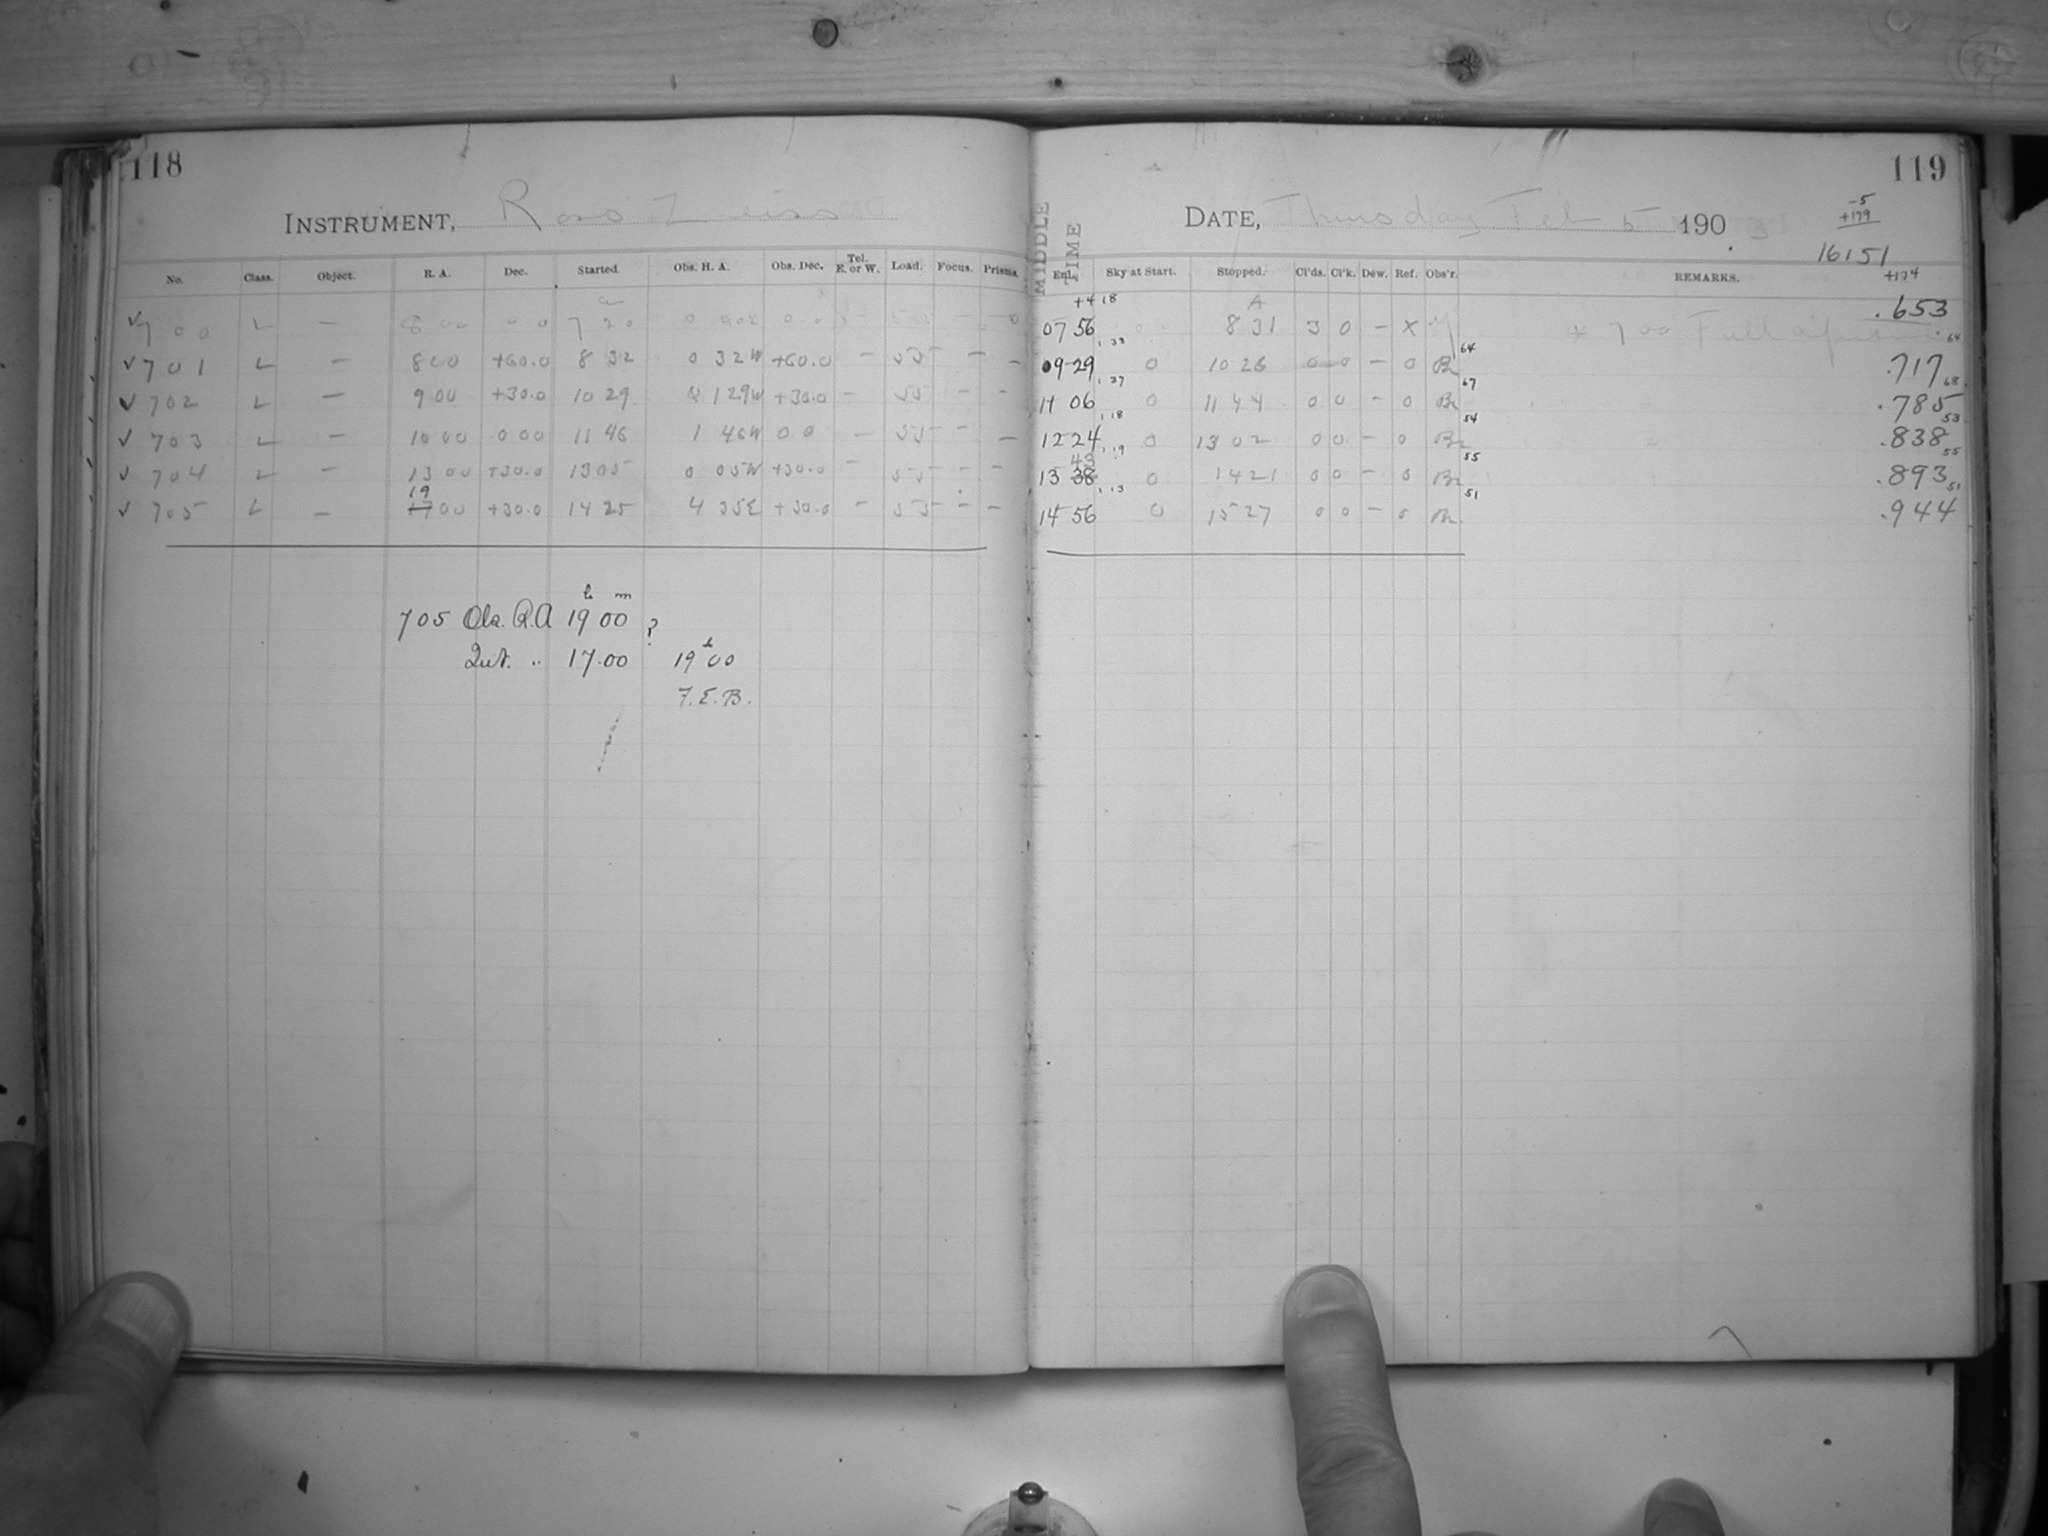 118
INSTRUMENT, Ross Zeiss
No. Class. Object. R. A. Dec. Started. Obs. H. A. Obs. Dec. Tel. E. or W. Load. Focus. Prisms.
✓700 L — 8 00 0 0 7 20
✓701 L — 8 00 +60.0 8 32 0 32W +60.0 — — —
✓702 L — 9 00 +30.0 10 29 1 29W +30.0 — — —
✓703 L — 10 00 0 00 11 46 1 46W 0 0 — — —
✓704 L — 13 00 +30.0 13 05 0 05W +30.0 — — —
19
✓705 L — 17 00 +30.0 14 25 4 35E +30.0 — — —
h m
705 Obs. R.A 19 00 ?
Qut. " 17.00 19h 00
F.E.B.
119
MIDDLE TIME
DATE, Thursday Feb 5 1903
-5
+179
16151
+174
Enl. Sky at Start. Stopped. Cl'ds. Cl'k. Dew. Ref. Obs'r. REMARKS.
+4 18 A .653
07 56 8 31 3 0 — X + 700 Full aperture
1.33 64 64
09 29 0 10 26 0 0 — 0 Br .717
1.37 67 68
11 06 0 11 44 0 0 — 0 Br .785
1.18 54 53
12 24 0 13 02 0 0 — 0 Br .838
1.19 55 55
43
13 38 0 14 21 0 0 — 0 Br .893
1.13 51 51
14 56 0 15 27 0 0 — 0 Br .944